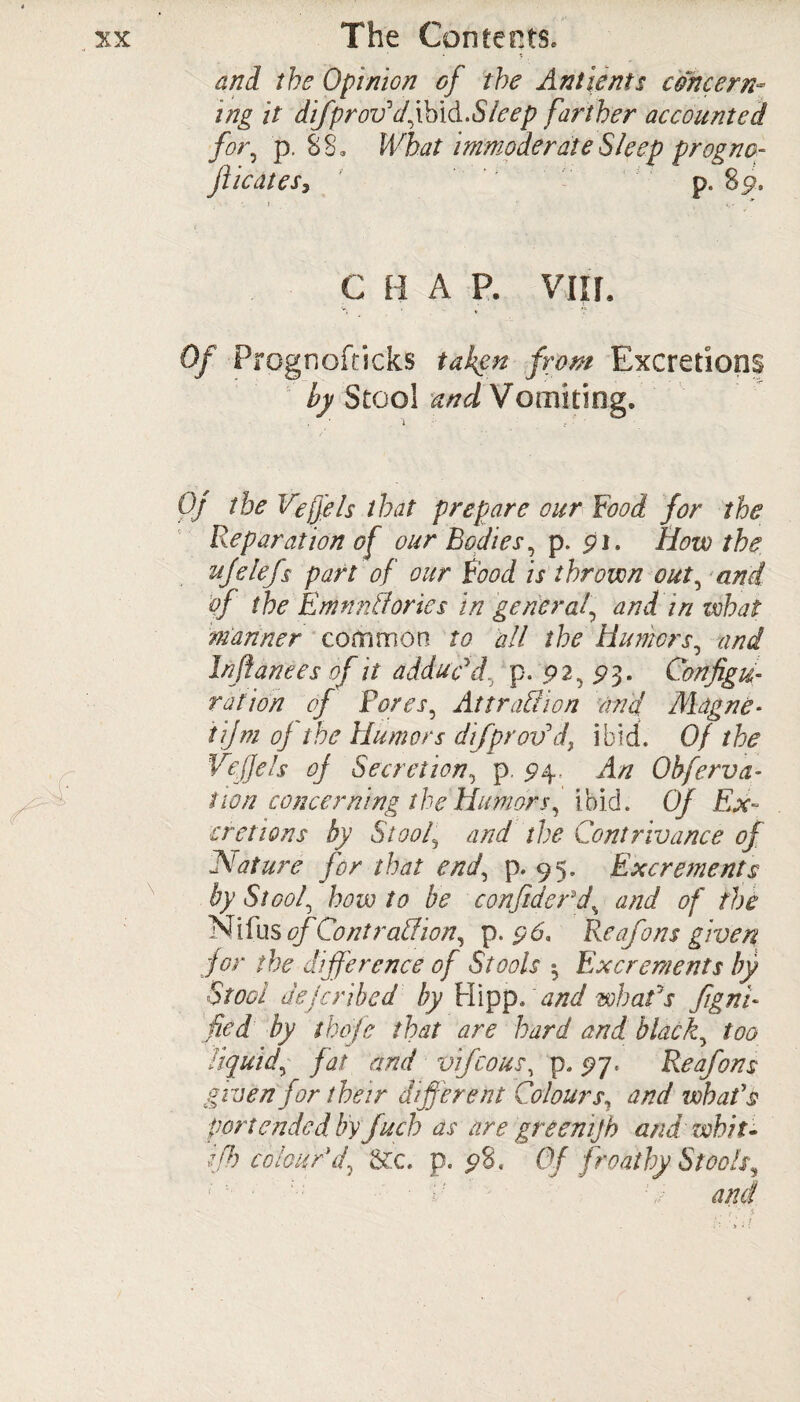 xx The Contents.
and the Opinion of the Antients concern-
ing it diſprov'd, ibid. Sleep farther accounted
for, p. 88. What immoderate Sleep progno-
ſticates, p. 89.
CHAP. VIII.
Of Prognoſticks taken from Excretions
by Stool and Vomiting.
Of the Veſſels that prepare our Food for the
Reparation of our Bodies, p. 91. How the
uſeleſs part of our Food is thrown out, and
of the Emnnctories in general, and in what
manner common to all the Humors, and
Inſtances of it adduc'd, p. 92, 93. Configu-
ration of Pores, Attraction and Magne-
tiſm of the Humors diſprov'd, ibid. Of the
Veſſels of Secretion, p. 94. An Obſerva-
tion concerning the Humors, ibid. Of Ex-
cretions by Stool, and the Contrivance of
Nature for that end, p. 95. Excrements
by Stool, how to be conſider'd, and of the
Niſus of Contraction, p. 96. Reaſons given
for the difference of Stools; Excrements by
Stool deſcribed by Hipp. and what's ſigni-
fied by thoſe that are hard and black, too
liquid, fat and viſcous, p. 97. Reaſons
given for their different Colours, and what's
portended by ſuch as are greeniſh and whit-
iſh colour'd, &c. p. 98. Of froathy Stools,
and